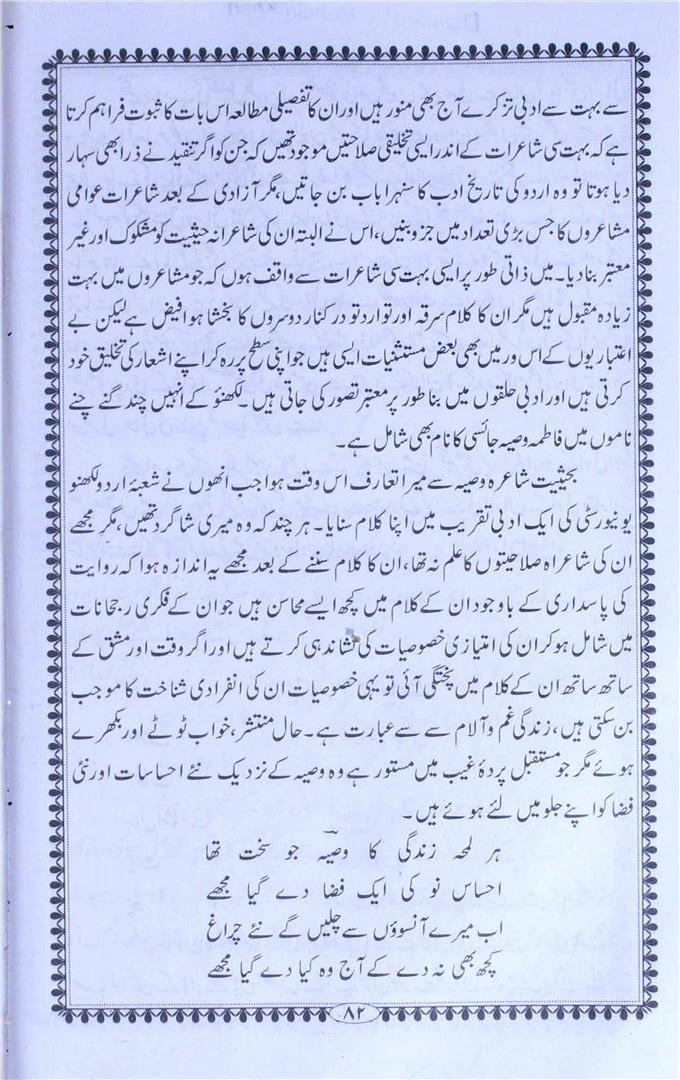 سے بہت سے ادبی تزکرے آج بھی منور ہیں اور ان کا تفصیلی مطالعہ اس بات کا ثبوت فراہم کرتا
ہے کہ بہت سی شاعرات کے اندر ایسی تخلیقی صلاحتیں موجود تھیں کہ جن کو اگر تنقید نے ذرا بھی سہار
دیا ہوتا تو وہ اردو کی تاریخ ادب کا سنہرا باب بن جاتیں، مگر آزادی کے بعد شاعرات عوامی
مشاعروں کا جس بڑی تعداد میں جزو بنیں، اس نے البتہ ان کی شاعرانہ حیثیت کو مشکوک اور غیر
معتبر بنا دیا۔ میں ذاتی طور پر ایسی بہت سی شاعرات سے واقف ہوں کہ جو مشاعروں میں بہت
زیادہ مقبول ہیں مگر ان کا کلام سرقہ اور توارد تو درکنار دوسروں کا بخشا ہوا فیض ہے لیکن بے
اعتباریوں کے اس ور میں بھی بعض مستثنیات ایسی ہیں جو اپنی سطح پر رہ کر اپنے اشعار کی تخلیق خود
کرتی ہیں اور ادبی حلقوں میں بنا طور پر معتبر تصور کی جاتی ہیں۔ لکھنؤ کے انہیں چند گنے چنے
ناموں میں فاطمہ وصیہ جائسی کا نام بھی شامل ہے۔
بحیثیت شاعرہ وصیہ سے میرا تعارف اس وقت ہوا جب انھوں نے شعبۂ اردو لکھنو
یونیورسٹی کی ایک ادبی تقریب میں اپنا کلام سنایا۔ ہر چند کہ وہ میری شاگرد تھیں، مگر مجھے
ان کی شاعراہ صلاحیتوں کا علم نہ تھا، ان کا کلام سننے کے بعد مجھے یہ اندازہ ہوا کہ روایت
کی پاسداری کے باوجود ان کے کلام میں کچھ ایسے محاسن ہیں جو ان کے فکری رجحانات
میں شامل ہو کر ان کی امتیازی خصوصیات کی نشاندہی کرتے ہیں اور اگر وقت اور مشق کے
ساتھ ساتھ ان کے کلام میں پختگی آئی تو یہی خصوصیات ان کی انفرادی شناخت کا موجب
بن سکتی ہیں، زندگی غم و آلام سے سے عبارت ہے۔ حال منتشر، خواب ٹوٹے اور بکھرے
ہوئے مگر جو مستقبل پردۂ غیب میں مستور ہے وہ وصیہ کے نزدیک نئے احساسات اور نئی
فضا کو اپنے جلو میں لئے ہوئے ہیں۔
ہر لمحہ زندگی کا وصیہ جو سخت تھا
احساس نو کی ایک فضا دے گیا مجھے
اب میرے آنسوؤں سے جلیں گے نئے چراغ
کچھ بھی نہ دے کے آج وہ کیا دے گیا مجھے
۸۲